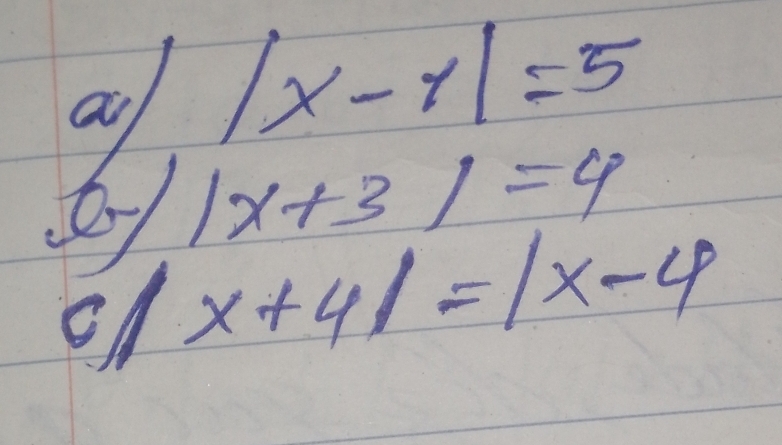 a) |x-1|=5
b) |x+3|=4
c) |x+4|=|x-4